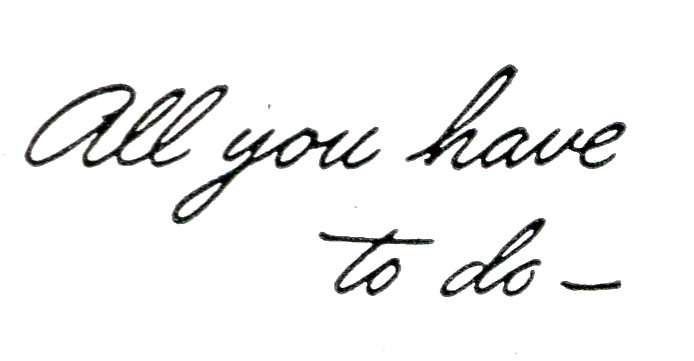 All you have
to do—